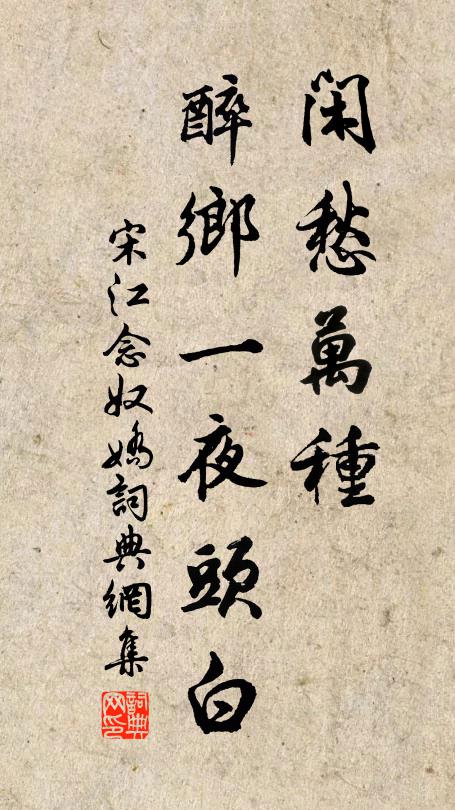 閑愁萬種
醉鄉一夜頭白
宋江念奴嬌詞典網集
詞典网印